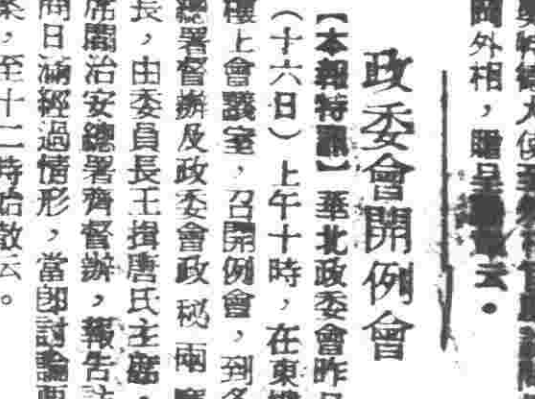 關外相，贈呈
云。
政委會開例會
【本報特訊】華北政委會昨
（十六日）上午十時，在東樓
樓上會議室，召開例會，到各
總署督辦及政委會政秘兩
長，由委員長王揖唐氏主席，
席間治安總署齊督辦，報告訪
問日滿經過情形，當即討論要
案，至十二時始散云。